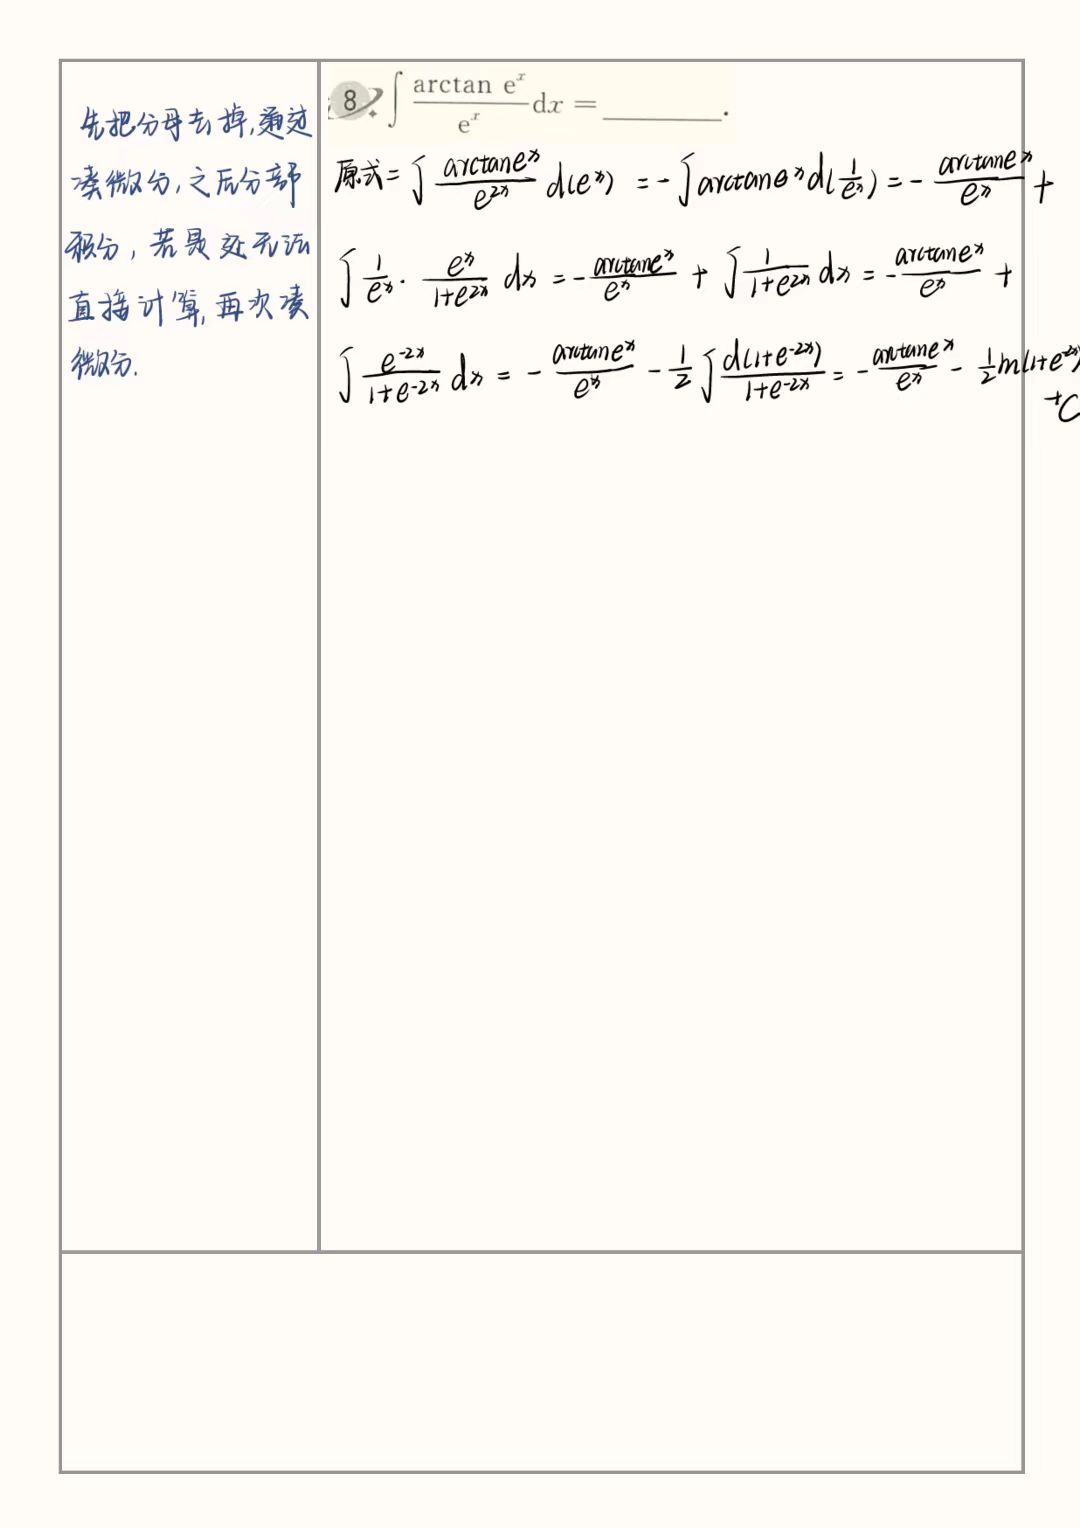 先把分母去掉,通过
凑微分,之后分部
积分,若是还无法
直接计算,再次凑
微分.
8. ∫ arctan e^x / e^x dx = ________.
原式=∫ arctane^x / e^{2x} d(e^x) = -∫arctane^x d(1/e^x) = - arctane^x / e^x +
∫ 1/e^x · e^x/(1+e^{2x}) dx = - arctane^x / e^x + ∫ 1/(1+e^{2x}) dx = - arctane^x / e^x +
∫ e^{-2x}/(1+e^{-2x}) dx = - arctane^x / e^x - 1/2 ∫ d(1+e^{-2x})/(1+e^{-2x}) = - arctane^x / e^x - 1/2 ln(1+e^{-2x})
+C